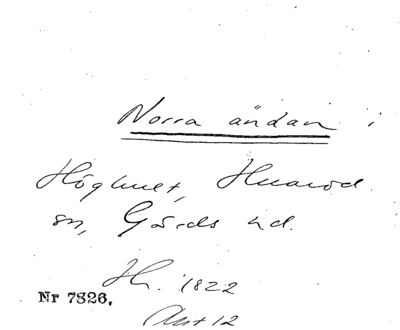 Norra ändan i
Höghult, Huaröd
sn, Gärds hd.
Hr. 1822
Nr 7826.
Akt 12